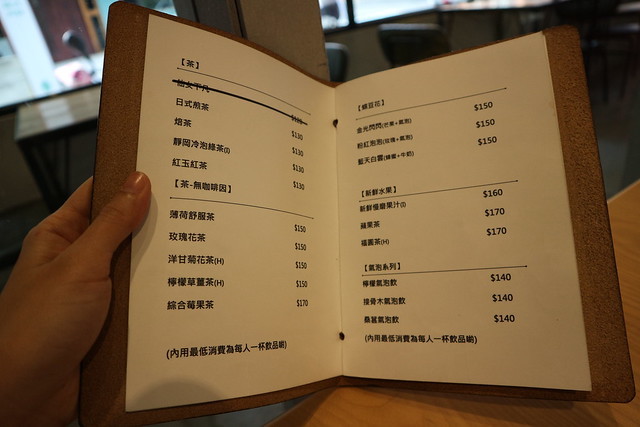 【茶】
$130
日式煎茶 $130
焙茶 $130
靜岡冷泡綠茶(I) $130
紅玉紅茶 $130
【茶-無咖啡因】
薄荷舒服茶 $150
玫瑰花茶 $150
洋甘菊花茶(H) $150
檸檬草薑茶(H) $150
綜合莓果茶 $170
(內用最低消費為每人一杯飲品喲)
【蝶豆花】
金光閃閃(芒果+氣泡) $150
粉紅泡泡(玫瑰+氣泡) $150
藍天白雲(蜂蜜+牛奶) $150
【新鮮水果】
新鮮慢磨果汁(I) $160
蘋果茶 $170
福圓茶(H) $170
【氣泡系列】
檸檬氣泡飲 $140
接骨木氣泡飲 $140
桑葚氣泡飲 $140
(內用最低消費為每人一杯飲品喲)